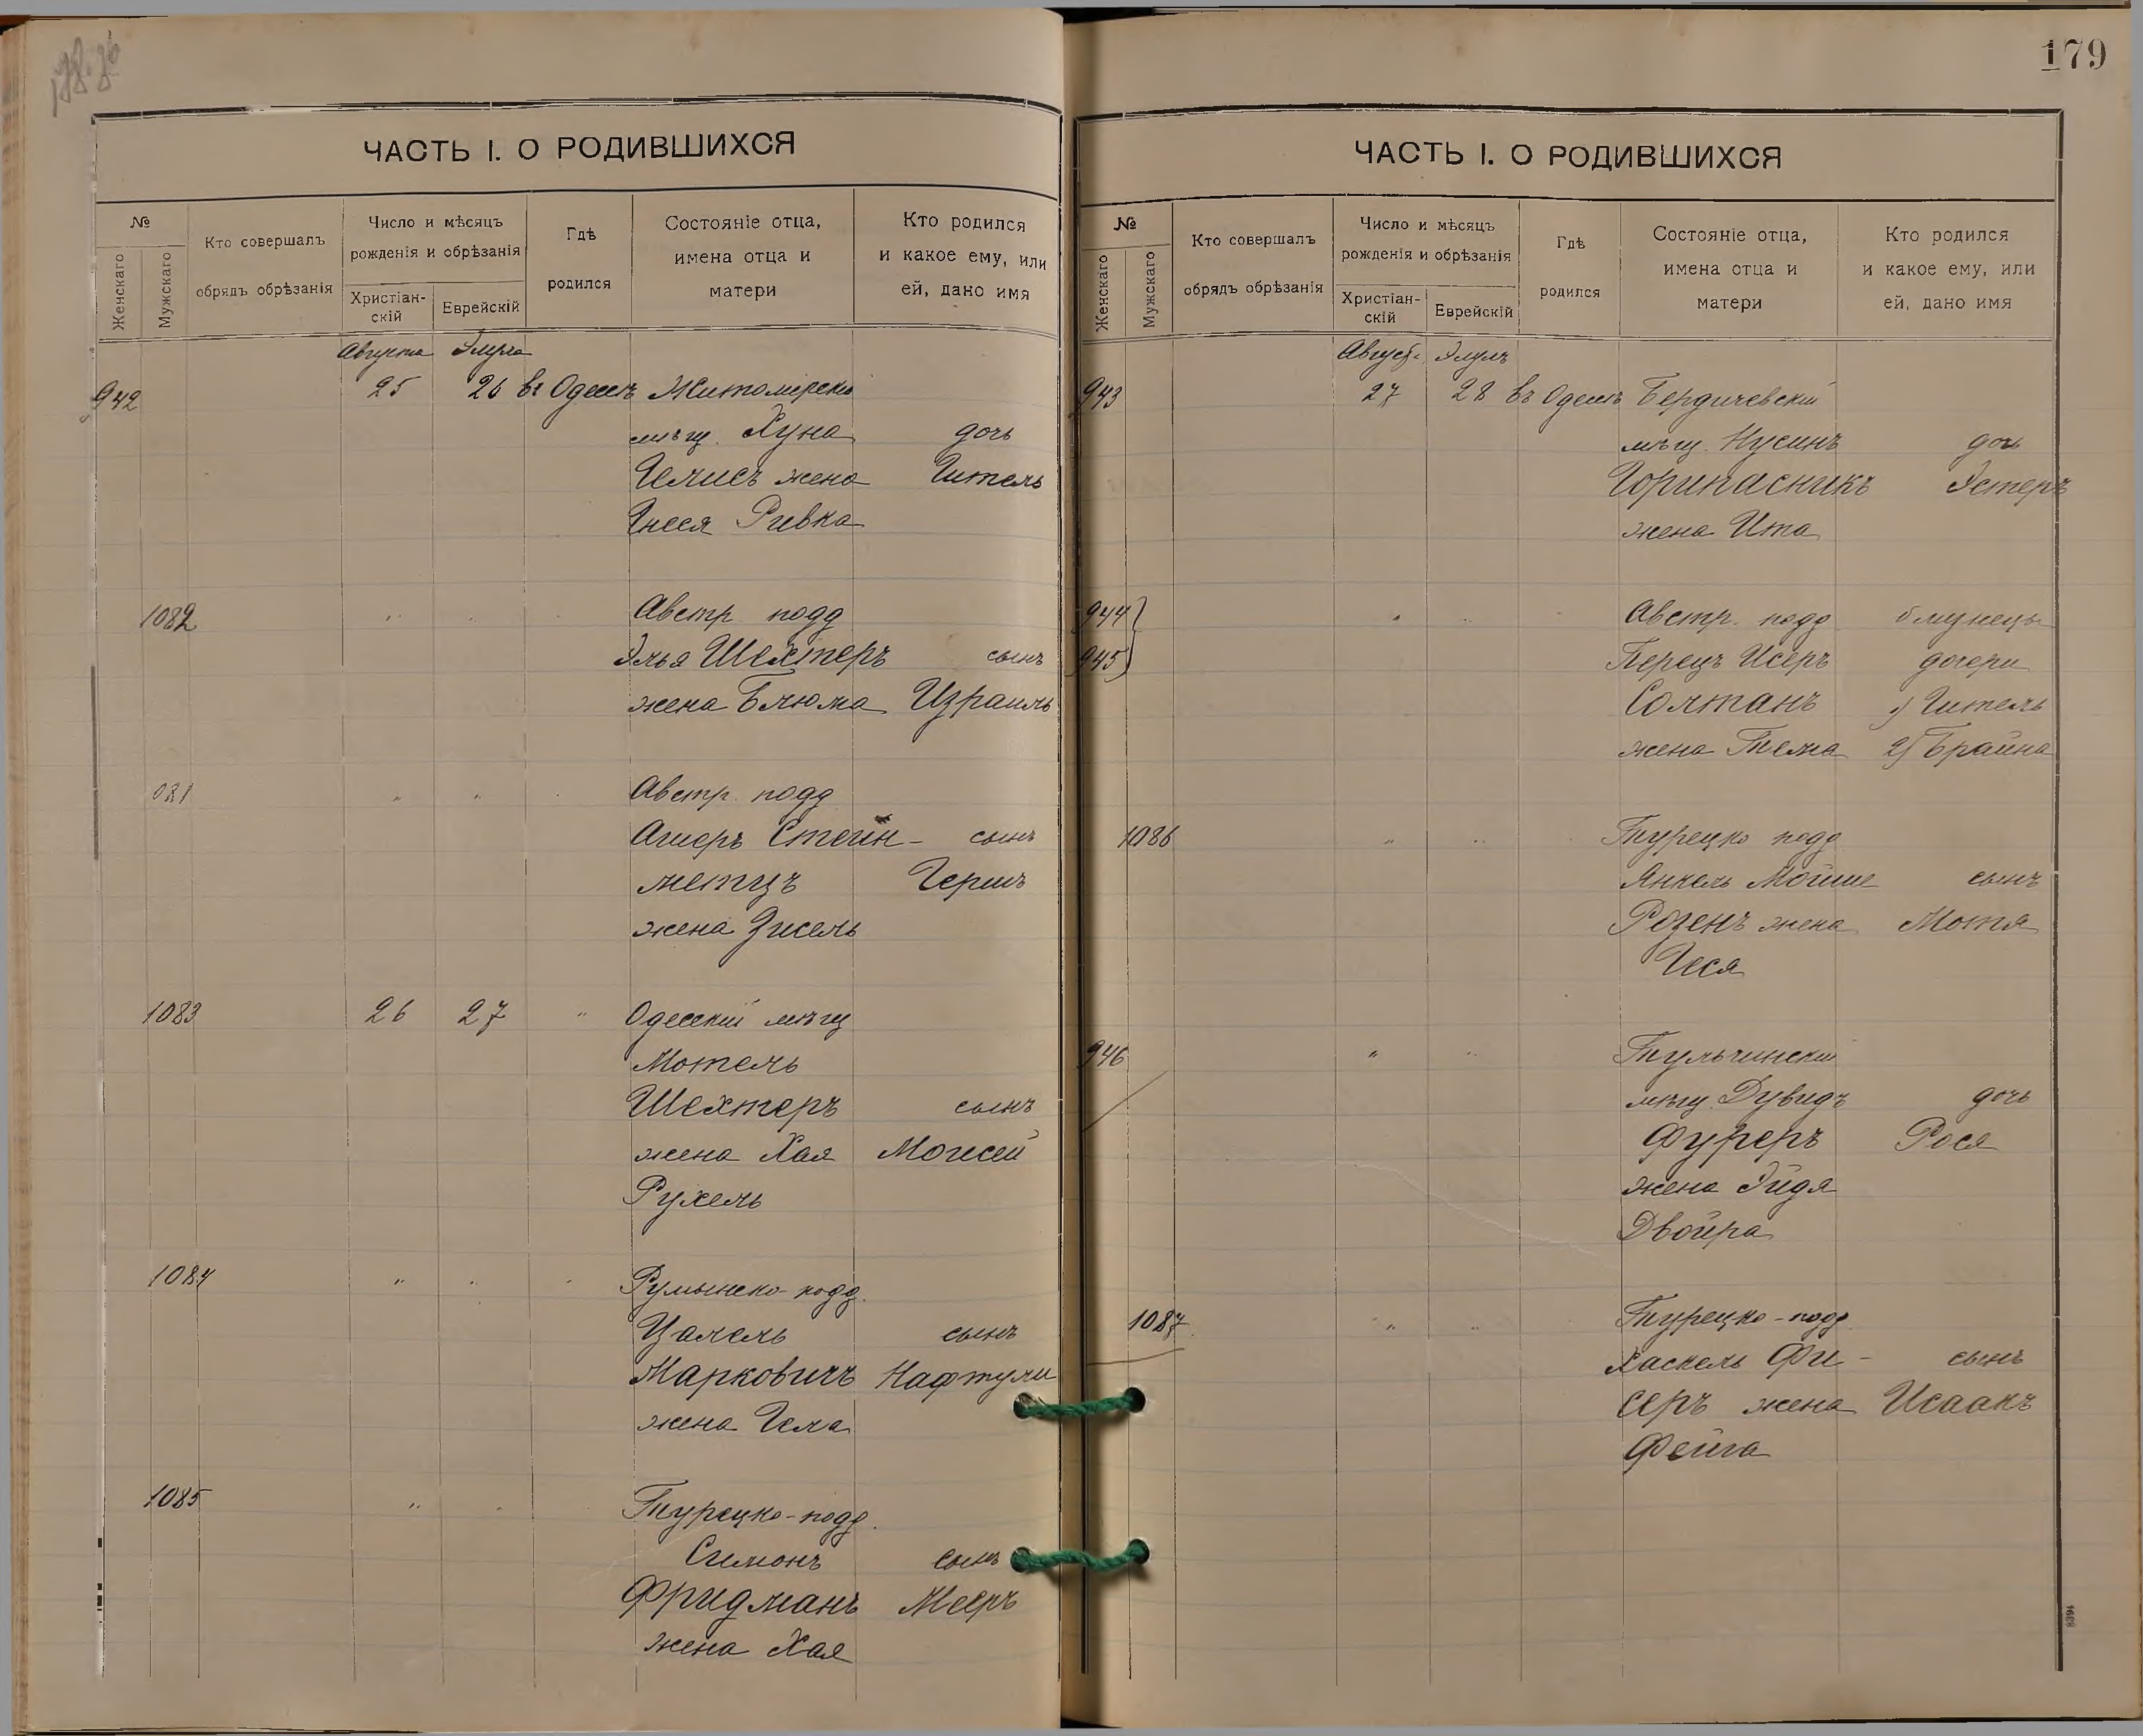 ЧАСТЬ I. О РОДИВШИХСЯ
№
Женскаго
Мужскаго
Кто совершалъ
обрядъ обрѣзанія
Число и мѣсяцъ
рожденія и обрѣзанія
Христіан-
скій
Еврейскій
Гдѣ
родился
Состояніе отца,
имена отца и
матери
Кто родился
и какое ему, или
ей, дано имя
Августа Элула
942 25 26 въ Одессѣ Житомірскій
мѣщ. Хуна дочь
жена Гитель
Ривка
1082 " " " Австр. подд
Элья Шехтеръ сынъ
жена Блюма Израиль
081 " " " Австр. подд
Ашеръ Стейн- сынъ
метцъ Гершъ
жена Зисель
1083 26 27 " Одесскій мѣщ
Мотель
Шехтеръ сынъ
жена Хая Моисей
Рухель
1084 " " " Румынско-подд.
Цалель сынъ
Марковичъ Нафтули
жена Гела
1085 " " Турецко-подд.
Симонъ сынъ
Фридманъ Мееръ
жена Хая
179
ЧАСТЬ I. О РОДИВШИХСЯ
№
Женскаго
Мужскаго
Кто совершалъ
обрядъ обрѣзанія
Число и мѣсяцъ
рожденія и обрѣзанія
Христіан-
скій
Еврейскій
Гдѣ
родился
Состояніе отца,
имена отца и
матери
Кто родился
и какое ему, или
ей, дано имя
Август. Элулъ
943 27 28 въ Одессѣ Бердичевскій
мѣщ. Нусинъ дочь
Горипасникъ Эстеръ
жена Ита
944 " " " Австр. подд близнецы
945 Перецъ Исеръ дочери
Солтанъ 1) Гитель
жена Тема 2) Брайна
1086 " " Турецко подд
Янкель Мойше сынъ
Розенъ жена Мотя
Геся
946 " " Тульчинскій
мѣщ. Дувидъ дочь
Фуреръ Рося
жена Эйдя
Двойра
1087 " " Турецко-подд.
Хаскель Фи- сынъ
серъ жена Исаакъ
Фейга
8394